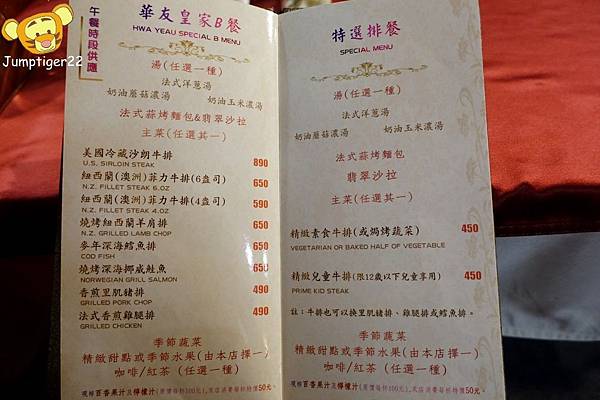 Jumptiger22
午餐時段供應
華友皇家B餐
HWA YEAU SPECIAL B MENU
湯(任選一種)
法式洋蔥湯
奶油蘑菇濃湯 奶油玉米濃湯
法式蒜烤麵包&翡翠沙拉
主菜(任選其一)
美國冷藏沙朗牛排 890
U.S. SIRLOIN STEAK
紐西蘭(澳洲)菲力牛排(6盎司) 650
N.Z. FILLET STEAK 6.OZ
紐西蘭(澳洲)菲力牛排(4盎司) 590
N.Z. FILLET STEAK 4.OZ
燒烤紐西蘭羊肩排 650
N.Z. GRILLED LAMB CHOP
麥年深海鱈魚排 650
COD FISH
燒烤深海挪威鮭魚 650
NORWEGIAN GRILL SALMON
香煎里肌豬排 490
GRILLED PORK CHOP
法式香煎雞腿排 490
GRILLED CHICKEN
季節蔬菜
精緻甜點或季節水果(由本店擇一)
咖啡/紅茶 (任選一種)
現榨百香果汁及檸檬汁(原價每杯100元),來店消費每杯特價50元。
特選排餐
SPECIAL MENU
湯(任選一種)
法式洋蔥湯
奶油蘑菇濃湯 奶油玉米濃湯
法式蒜烤麵包
翡翠沙拉
主菜(任選其一)
精緻素食牛排(或焗烤蔬菜) 450
VEGETARIAN OR BAKED HALF OF VEGETABLE
精緻兒童牛排(限12歲以下兒童享用) 450
PRIME KID STEAK
註:牛排也可以換里肌豬排、雞腿排或鱈魚排。
季節蔬菜
精緻甜點或季節水果(由本店擇一)
咖啡/紅茶(任選一種)
現榨百香果汁及檸檬汁(原價每杯100元),來店消費每杯特價50元。